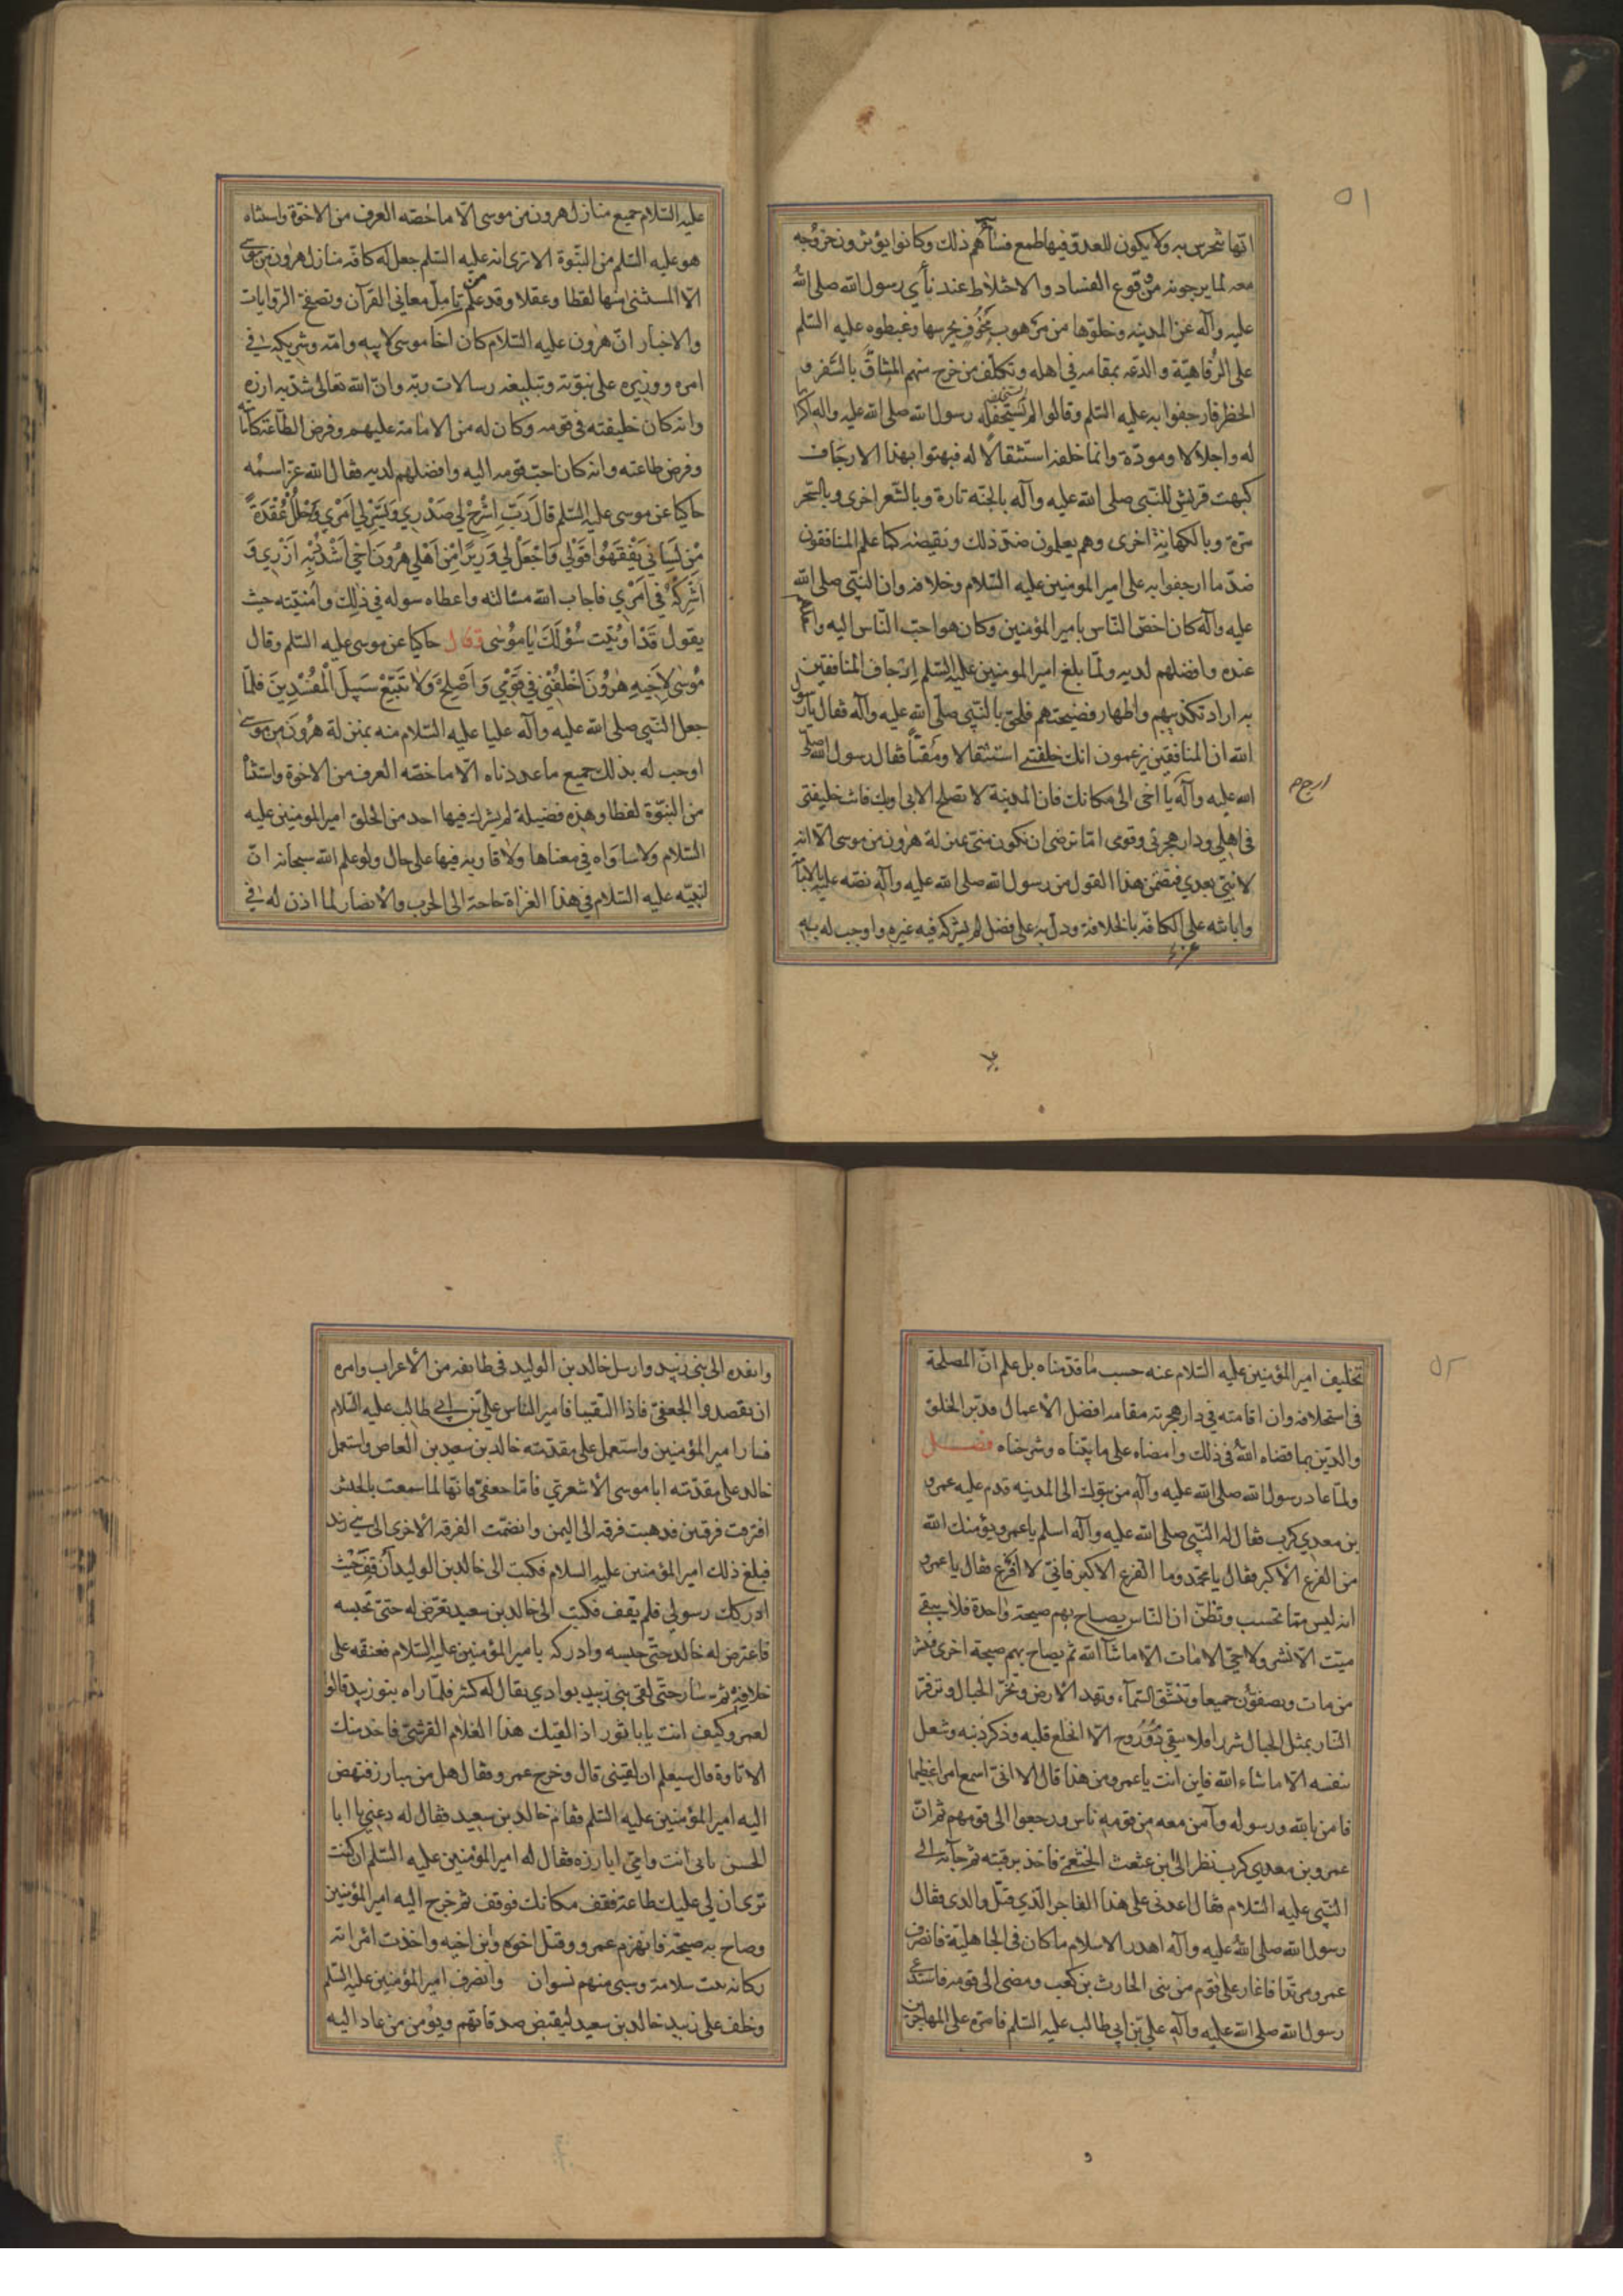 ٥١
انها تتحرس به ولا يكون للعدو فيها طمع فساءهم ذلك وكانوا يؤثرون خروجه
معه لما يرجونه من وقوع الفساد والاختلاط عند نأي رسول الله صلى الله
عليه وآله عن المدينه وخلوها من مرهوب مخوف يحرسها وغبطوه عليه السلم
على الرفاهية والدعه بمقامه في اهله وتكلف من خرج منهم المشاق بالسفر و
الخطر فارجفوا به عليه السلم وقالوا لم يستخلفه رسول الله صلى الله عليه واله اكراما
له واجلالا ومودة وانما خلفه استثقالا له فبهتوا بهذا الارجاف
كبهت قريش للنبي صلى الله عليه وآله بالجنه تارة وبالشعر اخرى وبالسحر
مرة وبالكهانة اخرى وهم يعلمون ضد ذلك ونقيضه كما علم المنافقون
ضد ما ارجفوا به على امير المومنين عليه السلام وخلافه وان النبي صلى الله
عليه وآله كان اخص الناس بامير المؤمنين وكان هو احب الناس اليه و
عنده وافضلهم لديه ولما بلغ امير المومنين عليه السلم ارجاف المنافقين
به اراد تكذيبهم واظهار فضيحتهم فلحق بالنبي صلى الله عليه وآله فقال يا رسول
الله ان المنافقين يزعمون انك خلفتني استثقالا ومقتا فقال رسول الله صلى
الله عليه وآله يا اخى الى مكانك فان المدينة لا تصلح الا بى او بك فانت خليفتى
ارجع
فى اهلي ودار هجرتي وقومى اما ترضى ان تكون منى بمنزلة هرون من موسى الا انه
لا نبي بعدي فتضمن هذا القول من رسول الله صلى الله عليه وآله نصه عليه بالامامة
وابانته على الكافة بالخلافة ودل به على فضل لم يشركه فيه غيره واوجب له به
عليه السلام جميع منازل هرون من موسى الا ما خصه العرف من الاخوة واستثناه
هو عليه السلم من النبوة الا ترى انه عليه السلم جعل له كافة منازل هرون من موسى
الا المستثنى منها لفظا وعقلا وقد علم من تامل معاني القرآن وتصفح الروايات
والاخبار ان هرون عليه السلام كان اخا موسى لابيه وامه وشريكه في
امره ووزيره على نبوته وتبليغه رسالات ربه وان الله تعالى شد به ازره
وانه كان خليفته في قومه وكان له من الامامة عليهم وفرض الطاعة كامامته
وفرض طاعته وانه كان احب قومه اليه وافضلهم لديه فقال الله عز اسمه
حاكيا عن موسى عليه السلم قَالَ رَبِّ اشْرَحْ لِي صَدْرِي وَيَسِّرْ لِي اَمْرِي وَاحْلُلْ عُقْدَةً
مِنْ لِسَانِي يَفْقَهُوا قَوْلِي وَاجْعَلْ لِي وَزِيرًا مِنْ اَهْلِي هٰرُونَ اَخِي اشْدُدْ بِهِ اَزْرِي وَ
اَشْرِكْهُ فِي اَمْرِي فاجاب الله مسئالته واعطاه سوله في ذلك وامنيته حيث
يقول قَدْ اُوتِيتَ سُؤْلَكَ يَا مُوسَى وقال حاكيا عن موسى عليه السلم وقال
مُوسٰى لِاَخِيهِ هٰرُونَ اخْلُفْنِي فِي قَوْمِي وَاَصْلِحْ وَلَا تَتَّبِعْ سَبِيلَ الْمُفْسِدِينَ فلما
جعل النبي صلى الله عليه وآله عليا عليه السلام منه بمنزلة هرون من موسى
اوجب له بذلك جميع ما عددناه الا ما خصه العرف من الاخوة واستثنا
من النبوة لفظا وهذه فضيلة لم يشرك فيها احد من الخلق امير المؤمنين عليه
السلام ولا ساواه في معناها ولا قاربه فيها على حال ولو علم الله سبحانه ان
لنبيه عليه السلام في هذا الغزاة حاجة الى الحرب والانصار لما اذن له في
٥٢
تخليف امير المؤمنين عليه السلام عنه حسب ما قدمناه بل علم ان المصلحة
فى استخلافه وان اقامته في دار هجرته مقامه افضل الاعمال فدبر الخلق
والدين بما قضاه الله في ذلك وامضاه على ما بيناه وشرحناه فصل
ولما عاد رسول الله صلى الله عليه وآله من تبوك الى المدينه قدم عليه عمرو
بن معدي كرب فقال له النبي صلى الله عليه وآله اسلم يا عمرو يؤمنك الله
من الفزع الاكبر فقال يا محمد وما الفزع الاكبر فاني لا افزع فقال يا عمرو
انه ليس مما تحسب وتظن ان الناس يصاح بهم صيحة واحدة فلا يبقى
ميت الا نشر ولا حي الا مات الا ما شاء الله ثم يصاح بهم صيحة اخرى فنشر
من مات ويصفون جميعا وتنشق السمآء وتهد الارض وتخر الجبال وتزفر
النار بمثل الجبال شررا فلا يبقى ذو روح الا انخلع قلبه وذكر ذنبه وشغل
بنفسه الا ما شاء الله فاين انت يا عمرو من هذا قال الا انى اسمع امرا عظيما
فامن بالله ورسوله وآمن معه من قومه ناس ورجعوا الى قومهم ثم ان
عمرو بن معدي كرب نظر الى ابن عثعث الخثعمي فاخذ برقبته ثم جآء به الى
النبى عليه السلام فقال اعدنى على هذا الفاجر الذي قتل والدى فقال
رسول الله صلى الله عليه وآله اهدر الاسلام ما كان فى الجاهلية فانصرف
عمرو مرتدا فاغار على قوم من بنى الحارث بن كعب ومضى الى قومه فاستدعى
رسول الله صلى الله عليه وآله علي بن ابي طالب عليه السلم فامره على المهاجرين
وانفده الى بنى زبيد وارسل خالد بن الوليد فى طايفه من الاعراب وامره
ان يقصدوا الجعفى فاذا التقيا فامير الناس علي بن ابي طالب عليه السلام
فسار امير المؤمنين واستعمل على مقدمته خالد بن سعيد بن العاص واستعمل
خالد على مقدمته ابا موسى الاشعري فاما جعفي فانها لما سمعت بالجيش
افترقت فرقتين فذهبت فرقه الى اليمن وانضمت الفرقة الاخرى الى بني زبيد
فبلغ ذلك امير المؤمنين عليه السلام فكتب الى خالد بن الوليد أن قف حيث
ادركك رسولي فلم يقف فكتب الى خالد بن سعيد تعرض له حتى تحبسه
فاعترض له خالد حتى حبسه وادركه يا مير المؤمنين عليه السلام فعنفه على
خلافه ثم سار حتى لقى بنى زبيد بوادي يقال له كشر فلما راه بنو زبيد قالوا
لعمرو كيف انت يابا ثور اذا لقيك هذا الغلام القرشي فاخذ منك
الاتاوة قال سيعلم ان لقينى قال وخرج عمرو فقال هل من مبارز فنهض
اليه امير المؤمنين عليه السلم فقام خالد بن سعيد فقال له دعني يا ابا
الحسن بابى انت وامي ابارزه فقال له امير المؤمنين عليه السلم ان كنت
ترى ان لي عليك طاعة فقف مكانك فوقف ثم خرج اليه امير المؤمنين
وصاح به صيحة فانهزم عمرو وقتل اخوه وابن اخيه واخذت امراته
ركانه بنت سلامة وسبى منهم نسوان وانصرف امير المؤمنين عليه السلم
وخلف على زبيد خالد بن سعيد ليقبض صدقاتهم ويؤمن من عاد اليه